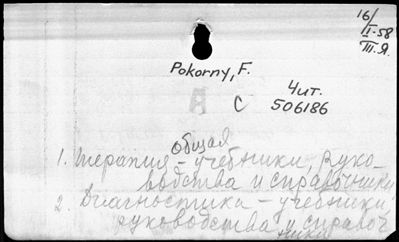 16/
II-58
III.Я.
Pokorny, F.
Чит.
С 506186
общая
1. Терапия - учебники, руко-
водства и справочники
2. Диагностика - учебники,
руководства и справоч
ники